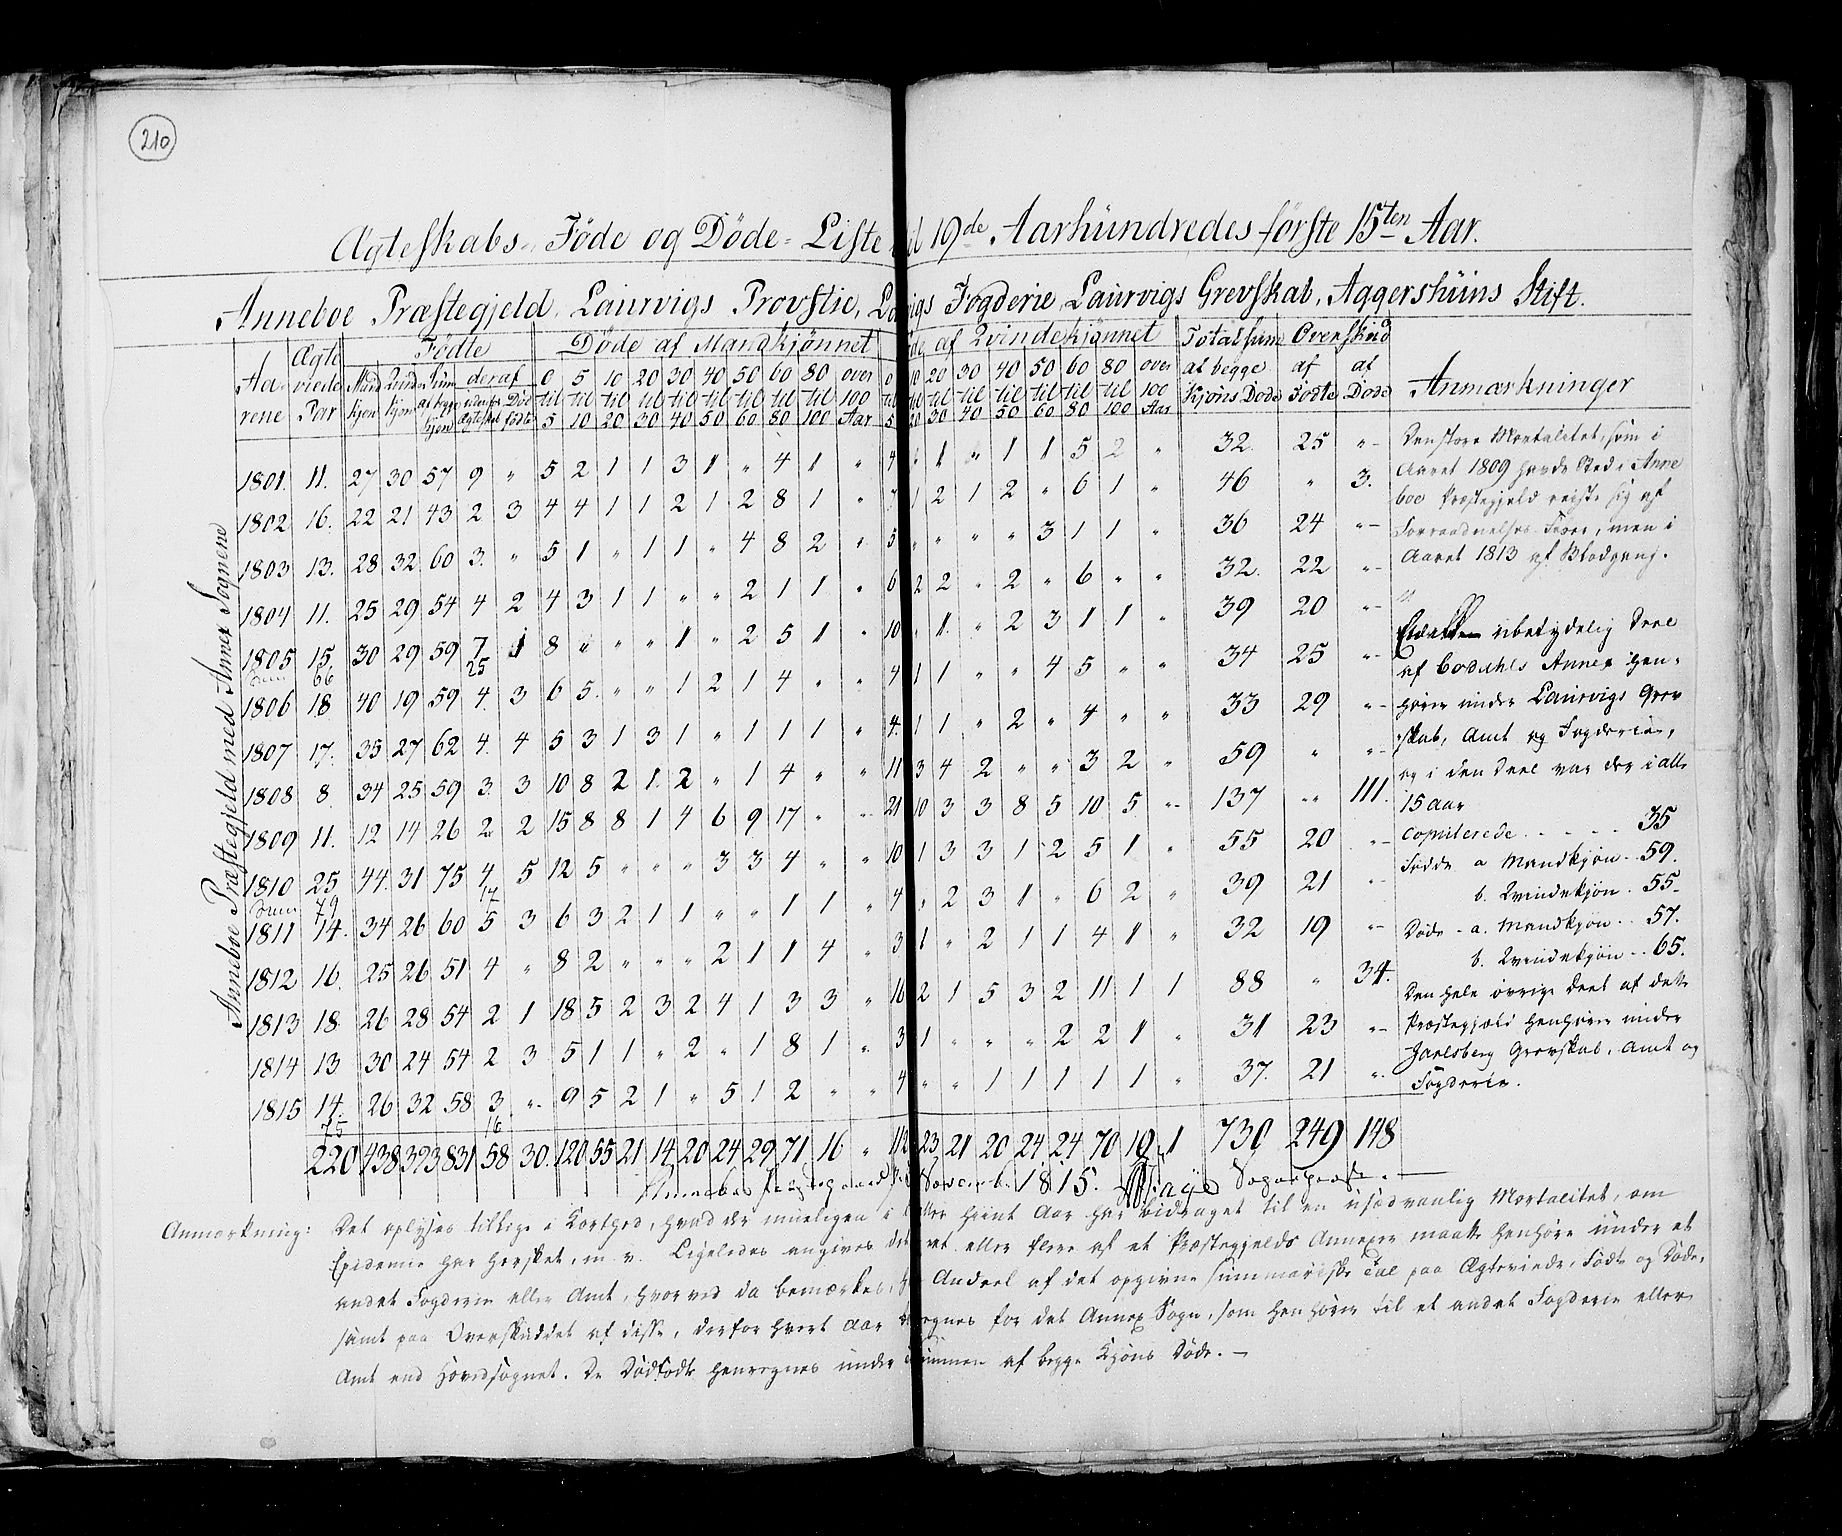 210
Ægteskabs- Føde og Døde-Liste 19de Aarhundredes første 15ten Aar.
Anneboe Præstegjeld, Laurvigs Provstie, Laurvigs Fogderie, Laurvigs Grevskab, Aggershuus Stift.
Anneboe Præstegjeld med Annex Sognene
Aarene Ægteviede Par Fødte Døde af Mandkjønnet Døde af Qvindekjønnet Totalsum af begge Kjøns Døde Overskud af Fødte af Døde Anmærkninger
Mandkjøn Qvindekjøn Sum af begge Kjøn deraf Dødfødte
0 til 5 5 til 10 10 til 20 20 til 30 30 til 40 40 til 50 50 til 60 60 til 80 80 til 100 over 100 Aar
1801. 11. 27 30 57 9 " 5 2 1 1 3 1 " 4 1 " 4 1 " 1 1 5 2 " 32. 25 "
1802 16. 22 21 43 2 3 4 4 1 1 2 1 2 8 1 " 7 1 2 1 2 " 6 1 " 46 " 3.
1803 13. 28 32 60 3. " 5 1 " 1 1 " 4 8 2 " 5 " " " " 3 1 1 " 36 24 "
1804 11. 25 29 54 4 2 4 3 1 1 " " 2 1 1 " 6 2 2 " 2 " 6 " " 32. 22 "
1805 15. 30 29 59 7 1 8 " " " 1 " 2 5 1 " 10 " 1 " 2 3 1 1 " 39 20 "
66 25
1806 18 40 19 59 4. 3 6 5 " " 1 2 1 4 " " 4 1 1 " " 4 5 " " 34 25 "
1807 17. 35 27 62 4. 4 5 3 1 3 1 " 1 1 1 " 4 1 1 " 2 " 4 " " 33 29 "
1808 8. 34 25 59 3. 3 10 8 2 1 2 " 1 4 " " 11 3 4 2 " " 3 2 " 59 " "
1809 11. 12 14 26 2 2 15 8 8 1 4 6 9 17 " " 21 10 3 3 8 5 10 5 " 137 " 111.
1810 25 44. 31 75 4 5 12 5 " " " 3 3 4 " " 10 1 3 3 1 2 5 1 " 55 20 "
79 17
1811 14. 34 26 60 5 3 6 3 2 1 1 " " 1 1 " 4 " 2 3 1 " 6 2 " 39 21 "
1812 16. 25 26 51 4 " 8 2 " " " 2 1 1 4 " 3 1 " 2 1 1 4 1 " 32 19 "
1813 18 26 28 54 2 1 18 5 2 3 2 4 1 3 3 " 16 2 1 5 3 2 11 1 1 88 " 34.
1814 13 30 24 54 2 3 5 1 1 " 2 " 1 8 1 " 3 1 " " " 2 2 1 " 31 23 "
1815 14. 26 32 58 3 " 9 5 2 1 " 5 1 2 " " 4 " " 1 1 1 1 1 " 37. 21 "
75 16
220 438 393 831 58 30. 120 55 21 14 20 24 29 71 16 " 112 23 21 20 24 24 70 19 1 730 249 148
Den store Mortalitet, som i
Aaret 1809 havde Sted i Anne
boe Præstegjeld reiste sig af
Forraadnelses-Feber, men i
Aaret 1813 af Blodgang.
ubetydelig Deel
af Annex hen-
hører under Laurvigs Grev
skab, Amt og Fogderie,
og i den Deel var der i alle
15 Aar
Copulerede - - - - 35
Fødde a Mandkjøn - 59.
b. Qvindekjøn - 55
Døde - a. Mandkjøn - 57.
b. Qvindekjøn - 65.
Den hele øvrige Deel af dette
Præstegjeld henhører under
Jarlsberg Grevskab, Amt og
Fogderie.
1815. Sognepræst
Anmærkning: Det oplyses tillige i Korthed, hvad der mueligen i eller hiint Aar har bidraget til en usædvanlig Mortalitet, om
Epidemie har hersket, m. v. Ligeledes angives det et eller flere af et Præstegjelds Annexer maatte henhøre under et
andet Fogderie eller Amt, hvorved da bemærkes, Andeel af det opgivne summariske Tal paa Ægteviede, Fødte og Døde,
samt paa Overskuddet af disse, derfor hvert Aar beregnes for det Annex Sogn, som henhører til et andet Fogderie eller
Amt end Hovedsognet. De Dødfødte henregnes under Summen af begge Kjøns Døde. -